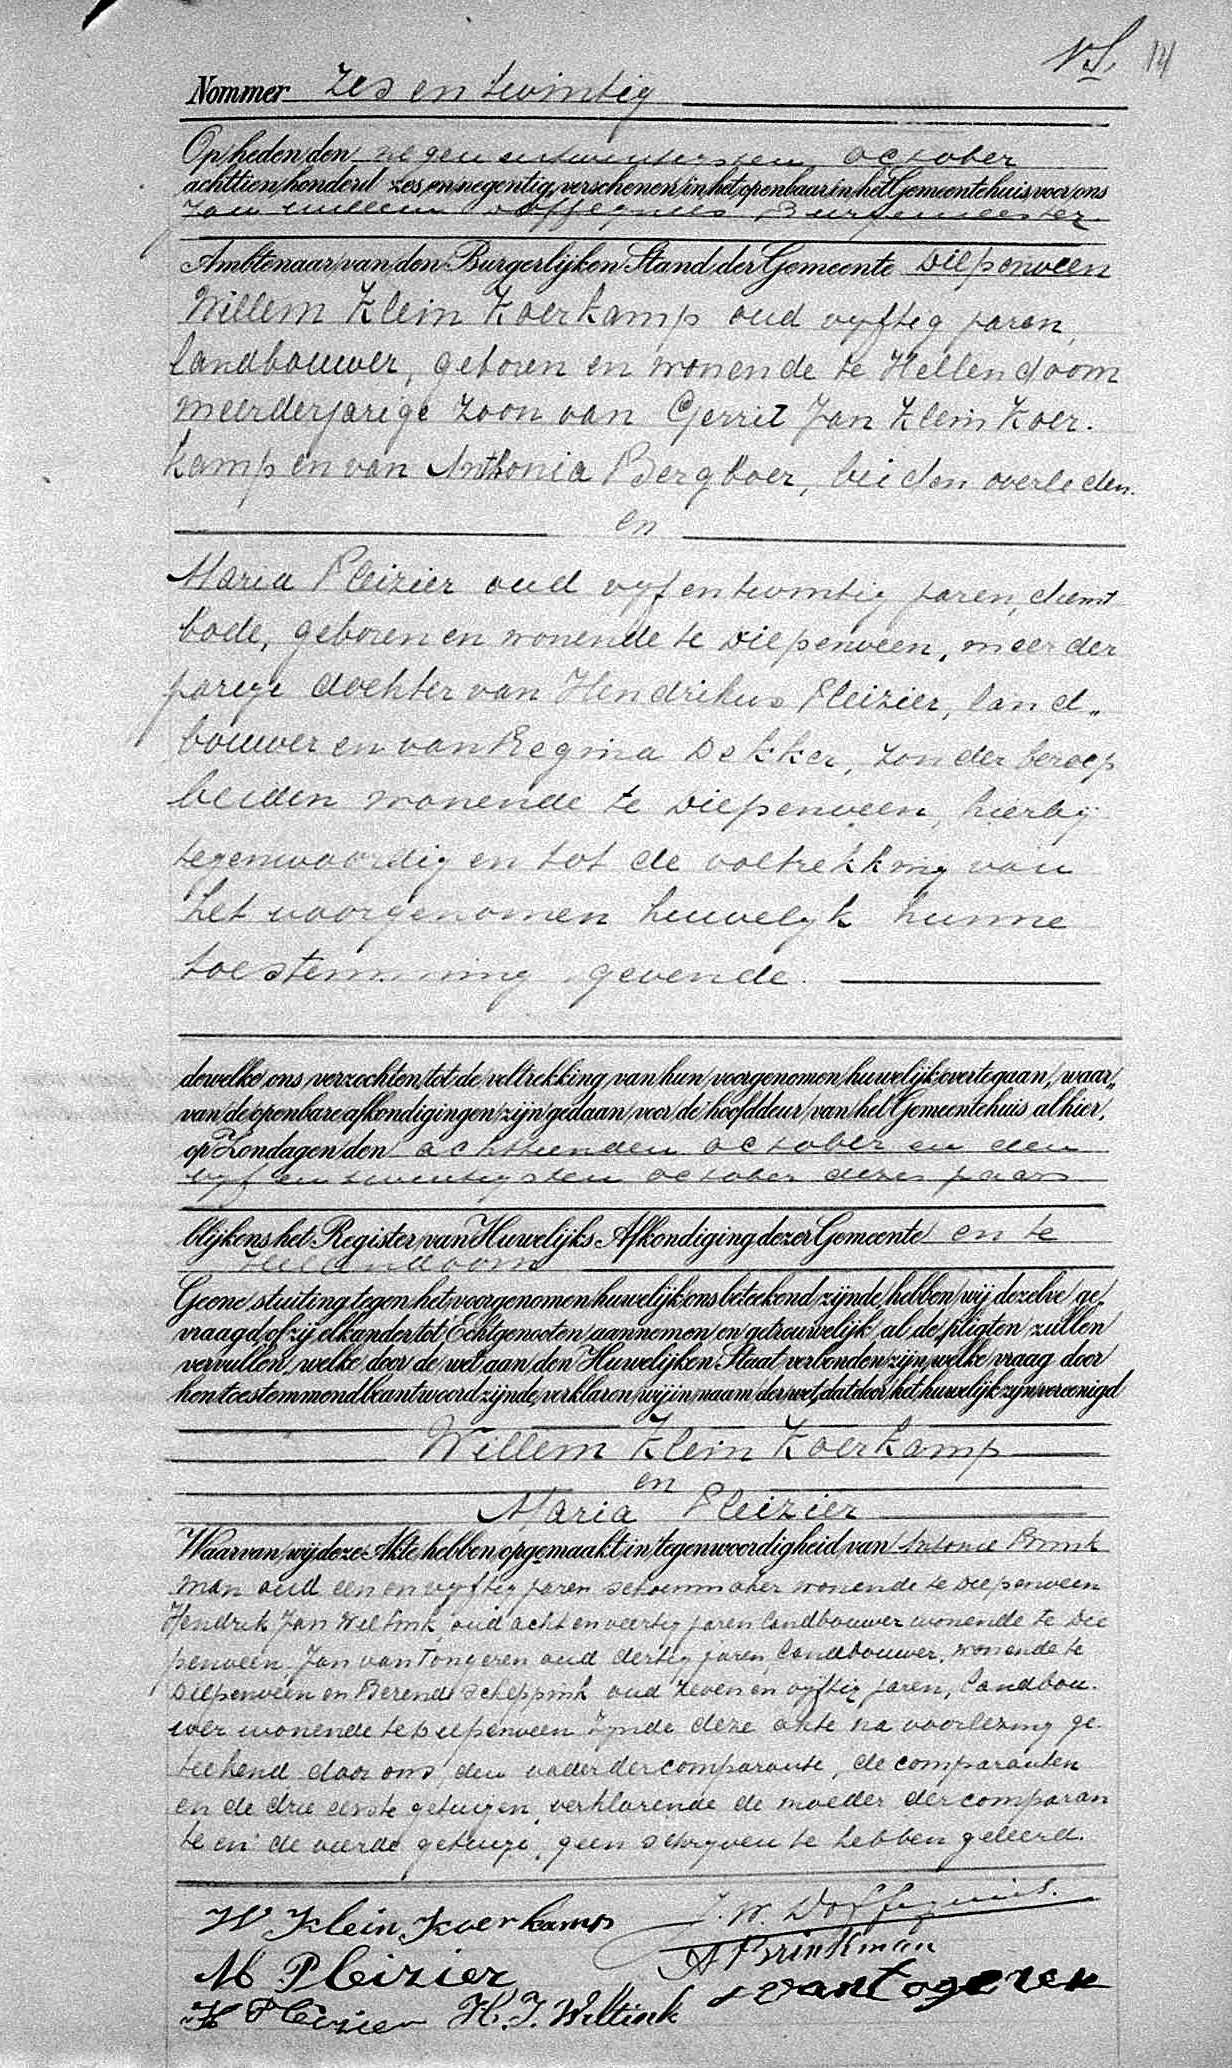 VS. 14
Nommer Zes en twintig
Op heden den negen en twintigsten October
achttien honderd zes en negentig, verschenen in het openbaar in het Gemeentehuis, voor ons
Jan Willem Doffegnies Burgemeester
Ambtenaar van den Burgerlijken Stand der Gemeente Diepenveen
Willem Klein Koerkamp oud vyftig jaren,
landbouwer, geboren en wonende te Hellendoorn
meerderjarige zoon van Gerrit Jan Klein Koer-
kamp en van Anthonia Bergboer, beiden overleden.
en
Maria Pleizier oud vyf en twintig jaren, dienst
bode, geboren en wonende te Diepenveen, meerder
jarige dochter van Hendrikus Pleizier, land„
bouwer en van Regina Dekker, zonder beroep
beiden wonende te Diepenveen, hierby
tegenwoordig en tot de voltrekking van
het voorgenomen huwelyk hunne
toestemming gevende.
dewelke ons verzochten tot de voltrekking van hun voorgenomen huwelijk overtegaan, waar„
van de openbare afkondigingen zijn gedaan voor de hoofddeur van het Gemeentehuis alhier,
op Zondagen den achttienden October en den
vyf en twintigsten October dezes jaars
blijkens het Register van Huwelijks Afkondiging dezer Gemeente en te
Hellendoorn
Geene stuiting tegen het voorgenomen huwelijk ons beteekend zijnde, hebben wij dezelve ge„
vraagd of zij elkander tot Echtgenooten aannemen en getrouwelijk al de pligten zullen
vervullen, welke door de wet aan den Huwelijken Staat verbonden zijn, welke vraag door
hen toestemmend beantwoord zijnde, verklaren wij in naam der wet, dat door het huwelijk zijn vereenigd
Willem Klein Koerkamp
en
Maria Pleizier
Waarvan wij deze Akte hebben opgemaakt in tegenwoordigheid van Antonie Brink
man oud een en vyftig jaren schoenmaker wonende te Diepenveen
Hendrik Jan Weltink, oud acht en veertig jaren landbouwer wonende te Die
penveen, Jan van Tongeren oud dertig jaren, landbouwer, wonende te
Diepenveen en Berend Scheppink oud zeven en vyftig jaren, landbou-
wer wonende te Diepenveen Zynde deze akte na voorlezing ge-
teekend door ons, den vader der comparante, de comparanten
en de drie eerste getuigen, verklarende de moeder der comparan
te en de vierde getuige, geen schryven te hebben geleerd.
W Klein Koerkamp J. W. Doffegnies.
A Brinkman
M Pleizier J van togeren
H Pleizier H. J. Weltink